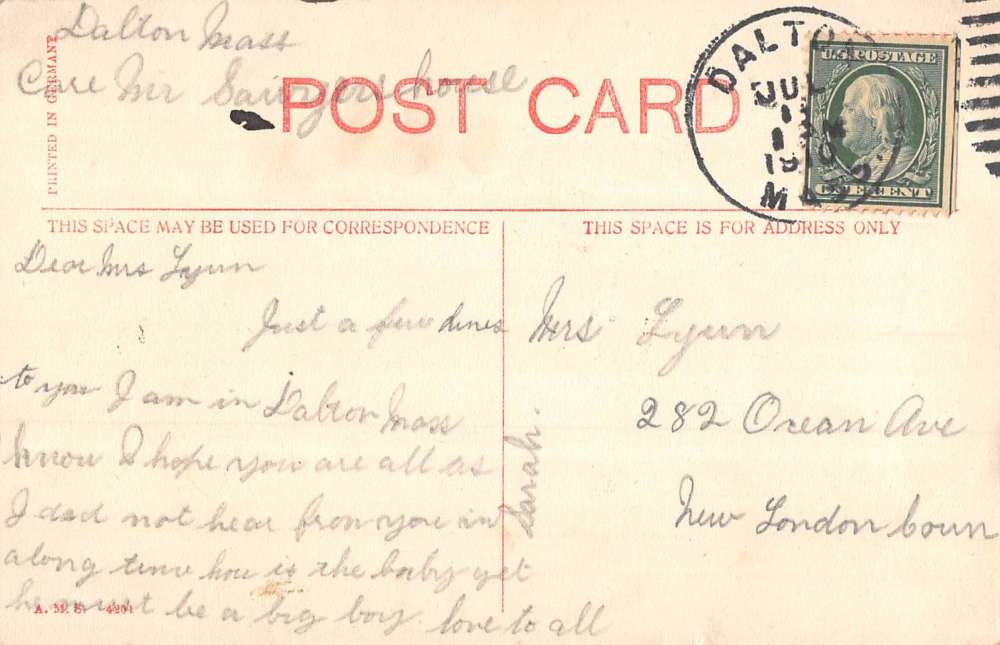 Dalton Mass
Care Mr Sawyers house
PRINTED IN GERMANY
POST CARD
DALTON
JUL
1910
MASS.
U.S. POSTAGE
ONE CENT
THIS SPACE MAY BE USED FOR CORRESPONDENCE
Dear Mrs Lyun
Just a few lines
to you I am in Dalton Mass
know I hope you are all as
I dad not hear from you in
along time how is the baby yet
he must be a big boy love to all
Sarah.
A. M. S. 4201
THIS SPACE IS FOR ADDRESS ONLY
Mrs Lyun
282 Ocean Ave
New London Conn